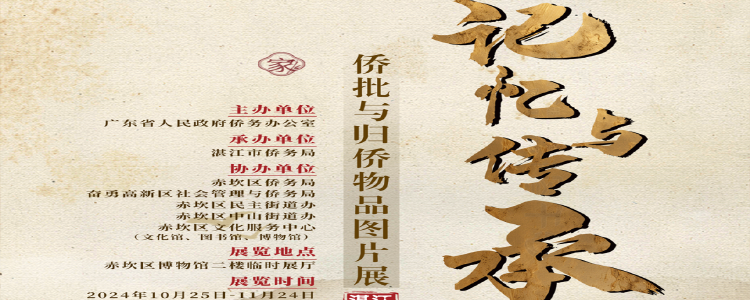 记忆与传承
侨批与归侨物品图片展
湛江
家
主办单位
广东省人民政府侨务办公室
承办单位
湛江市侨务局
协办单位
赤坎区侨务局
奋勇高新区社会管理与侨务局
赤坎区民主街道办
赤坎区中山街道办
赤坎区文化服务中心
(文化馆、图书馆、博物馆)
展览地点
赤坎区博物馆二楼临时展厅
展览时间
2024年10月25日-11月24日